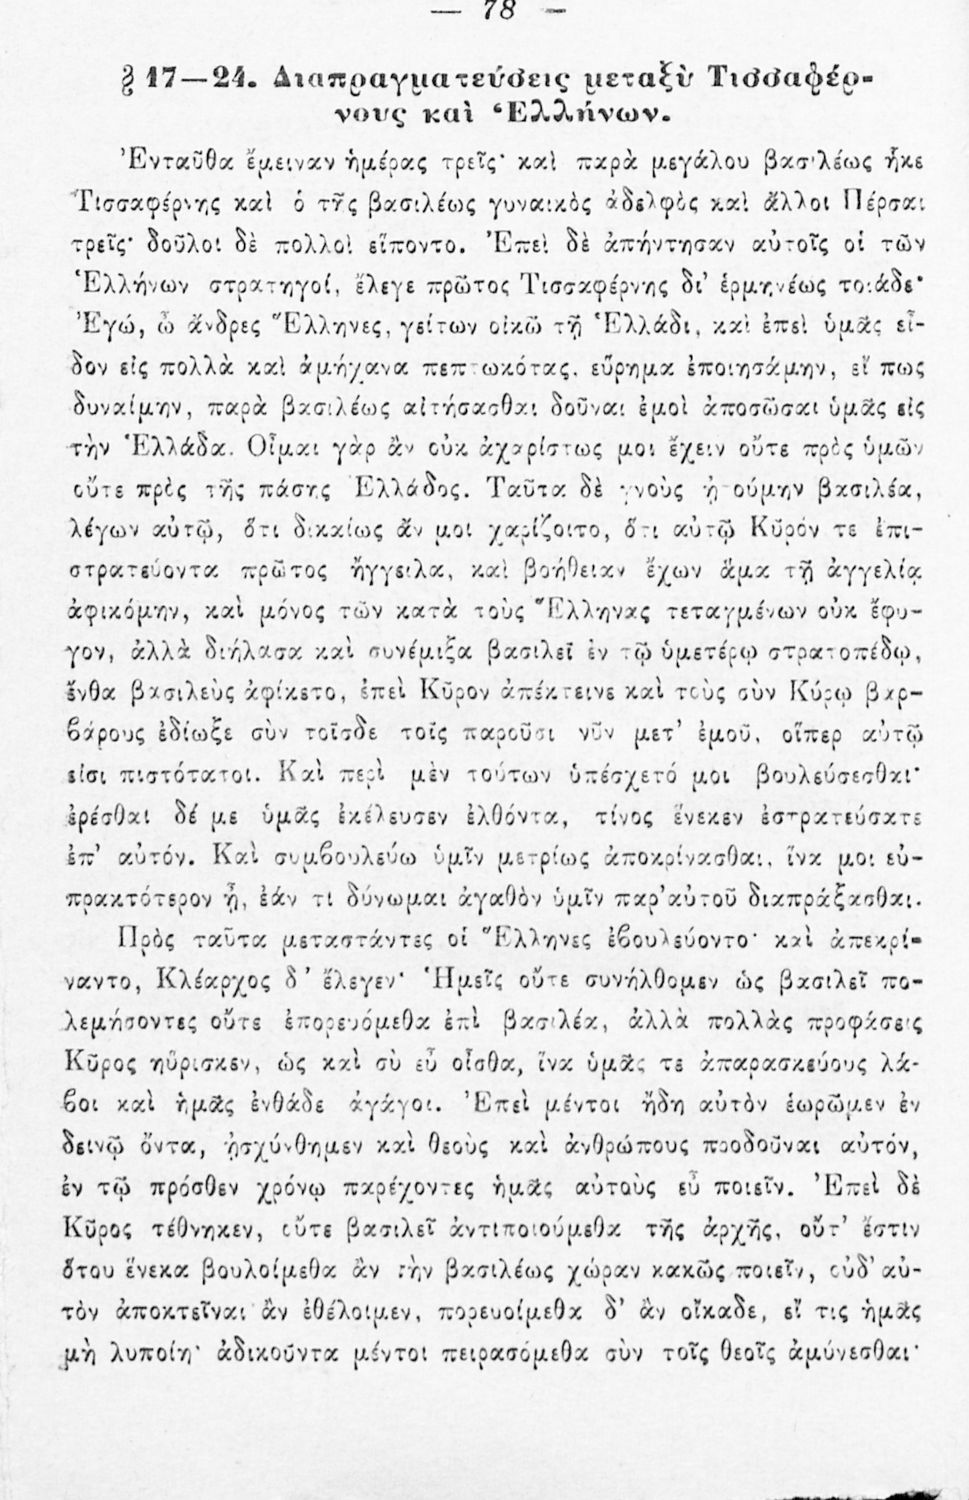 — 78 —
§ 17—24. Διαπραγματεύσεις μεταξὺ Τισσαφέρ-
νους καὶ Ἑλλήνων.
Ἐνταῦθα ἔμειναν ἡμέρας τρεῖς· καὶ παρὰ μεγάλου βασιλέως ἧκε
Τισσαφέρνης καὶ ὁ τῆς βασιλέως γυναικὸς ἀδελφὸς καὶ ἄλλοι Πέρσαι
τρεῖς· δοῦλοι δὲ πολλοὶ εἵποντο. Ἐπεὶ δὲ ἀπήντησαν αὐτοῖς οἱ τῶν
Ἑλλήνων στρατηγοί, ἔλεγε πρῶτος Τισσαφέρνης δι’ ἑρμηνέως τοιάδε·
Ἐγώ, ὦ ἄνδρες Ἕλληνες, γείτων οἰκῶ τῇ Ἑλλάδι, καὶ ἐπεὶ ὑμᾶς εἶ-
δον εἰς πολλὰ καὶ ἀμήχανα πεπτωκότας, εὕρημα ἐποιησάμην, εἴ πως
δυναίμην, παρὰ βασιλέως αἰτήσασθαι δοῦναι ἐμοὶ ἀποσῶσαι ὑμᾶς εἰς
τὴν Ἑλλάδα. Οἶμαι γὰρ ἂν οὐκ ἀχαρίστως μοι ἔχειν οὔτε πρὸς ὑμῶν
οὔτε πρὸς τῆς πάσης Ἑλλάδος. Ταῦτα δὲ γνοὺς ᾐτούμην βασιλέα,
λέγων αὐτῷ, ὅτι δικαίως ἄν μοι χαρίζοιτο, ὅτι αὐτῷ Κῦρόν τε ἐπι-
στρατεύοντα πρῶτος ἤγγειλα, καὶ βοήθειαν ἔχων ἅμα τῇ ἀγγελίᾳ
ἀφικόμην, καὶ μόνος τῶν κατὰ τοὺς Ἕλληνας τεταγμένων οὐκ ἔφυ-
γον, ἀλλὰ διήλασα καὶ συνέμιξα βασιλεῖ ἐν τῷ ὑμετέρῳ στρατοπέδῳ,
ἔνθα βασιλεὺς ἀφίκετο, ἐπεὶ Κῦρον ἀπέκτεινε καὶ τοὺς σὺν Κύρῳ βαρ-
βάρους ἐδίωξε σὺν τοῖσδε τοῖς παροῦσι νῦν μετ’ ἐμοῦ, οἵπερ αὐτῷ
εἰσι πιστότατοι. Καὶ περὶ μὲν τούτων ὑπέσχετό μοι βουλεύσεσθαι·
ἐρέσθαι δέ με ὑμᾶς ἐκέλευσεν ἐλθόντα, τίνος ἕνεκεν ἐστρατεύσατε
ἐπ’ αὐτόν. Καὶ συμβουλεύω ὑμῖν μετρίως ἀποκρίνασθαι, ἵνα μοι εὐ-
πρακτότερον ᾖ, ἐάν τι δύνωμαι ἀγαθὸν ὑμῖν παρ’ αὐτοῦ διαπράξασθαι.
Πρὸς ταῦτα μεταστάντες οἱ Ἕλληνες ἐβουλεύοντο· καὶ ἀπεκρί-
ναντο, Κλέαρχος δ’ ἔλεγεν· Ἡμεῖς οὔτε συνήλθομεν ὡς βασιλεῖ πο-
λεμήσοντες οὔτε ἐπορευόμεθα ἐπὶ βασιλέα, ἀλλὰ πολλὰς προφάσεις
Κῦρος ηὕρισκεν, ὡς καὶ σὺ εὖ οἶσθα, ἵνα ὑμᾶς τε ἀπαρασκεύους λά-
βοι καὶ ἡμᾶς ἐνθάδε ἀγάγοι. Ἐπεὶ μέντοι ἤδη αὐτὸν ἑωρῶμεν ἐν
δεινῷ ὄντα, ᾐσχύνθημεν καὶ θεοὺς καὶ ἀνθρώπους προδοῦναι αὐτόν,
ἐν τῷ πρόσθεν χρόνῳ παρέχοντες ἡμᾶς αὐτοὺς εὖ ποιεῖν. Ἐπεὶ δὲ
Κῦρος τέθνηκεν, οὔτε βασιλεῖ ἀντιποιούμεθα τῆς ἀρχῆς, οὔτ’ ἔστιν
ὅτου ἕνεκα βουλοίμεθα ἂν τὴν βασιλέως χώραν κακῶς ποιεῖν, οὐδ’ αὐ-
τὸν ἀποκτεῖναι ἂν ἐθέλοιμεν, πορευοίμεθα δ’ ἂν οἴκαδε, εἴ τις ἡμᾶς
μὴ λυποίη· ἀδικοῦντα μέντοι πειρασόμεθα σὺν τοῖς θεοῖς ἀμύνεσθαι·